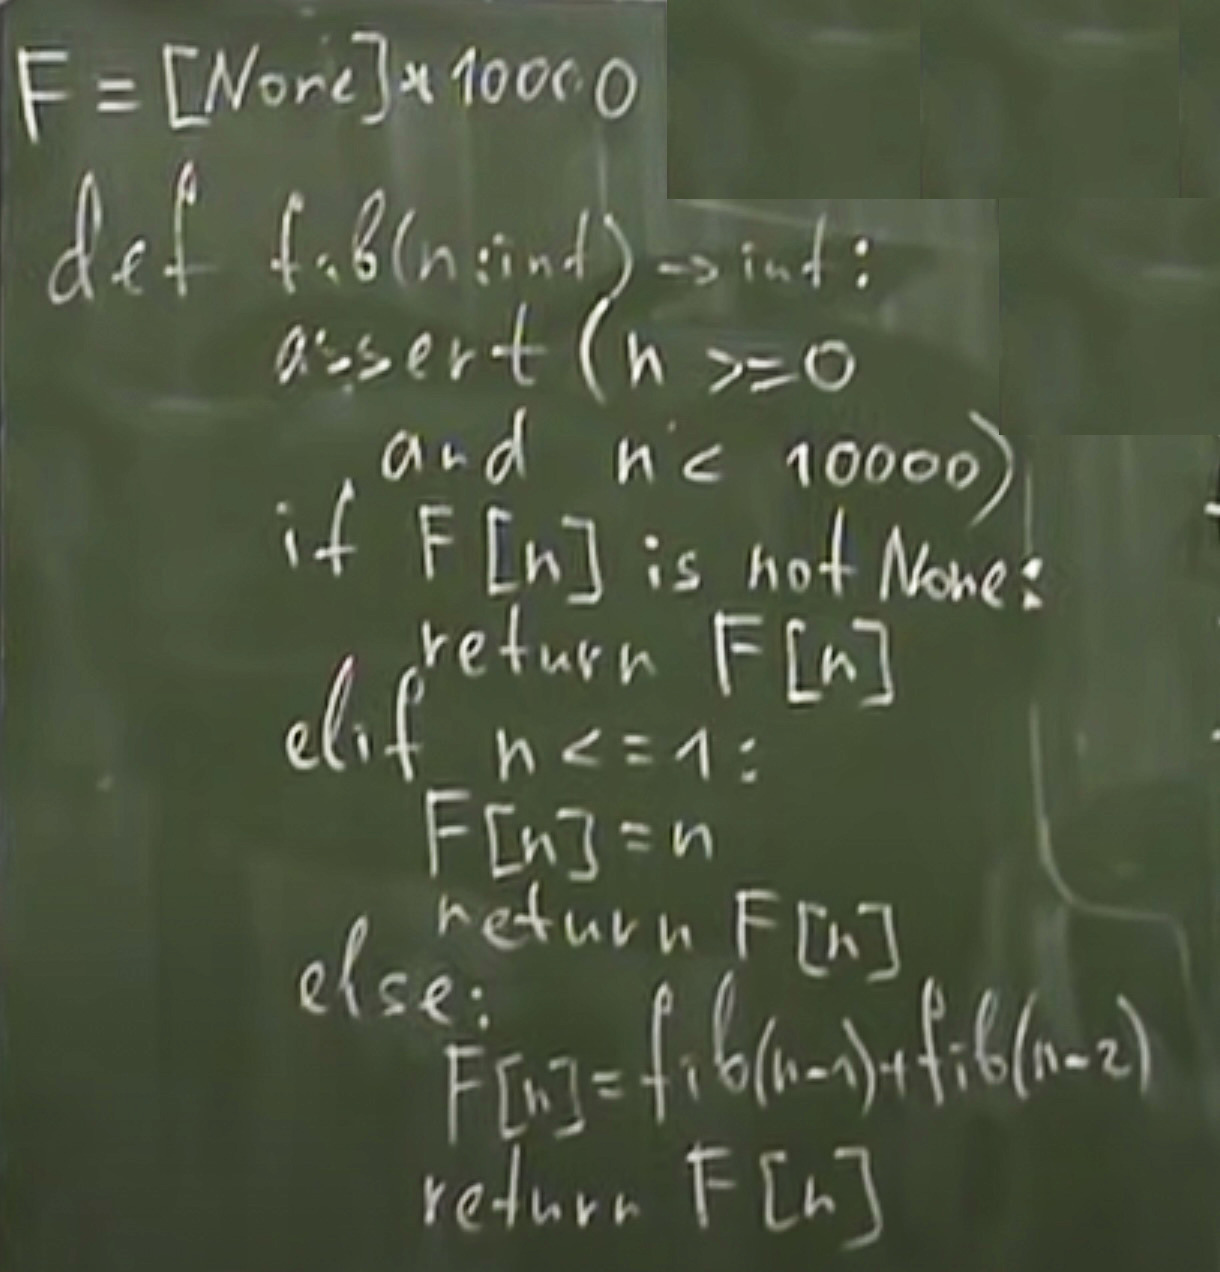 F = [None]*10000
def fib(n:int)->int:
assert (n >=0
and n < 10000)
if F[n] is not None:
return F[n]
elif n <= 1:
F[n] = n
return F[n]
else:
F[n]=fib(n-1)+fib(n-2)
return F[n]